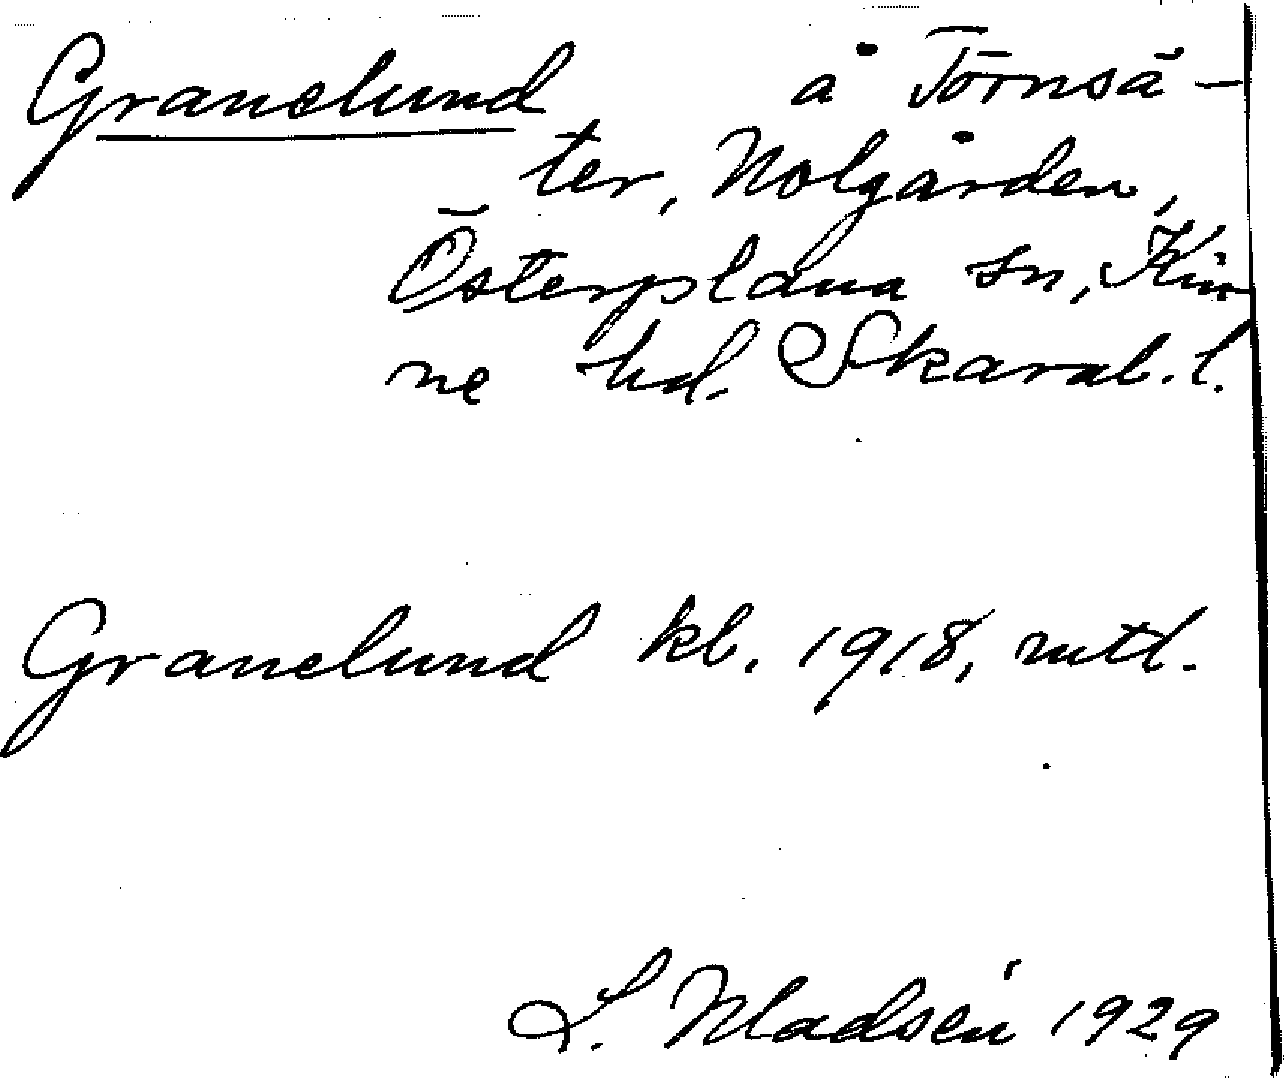 Granelund å Törnsä-
ter, Nolgården,
Österplana sn, Kin
ne hd. Skarab. l.
Granelund kl. 1918, mtl.
L. Madsén 1929